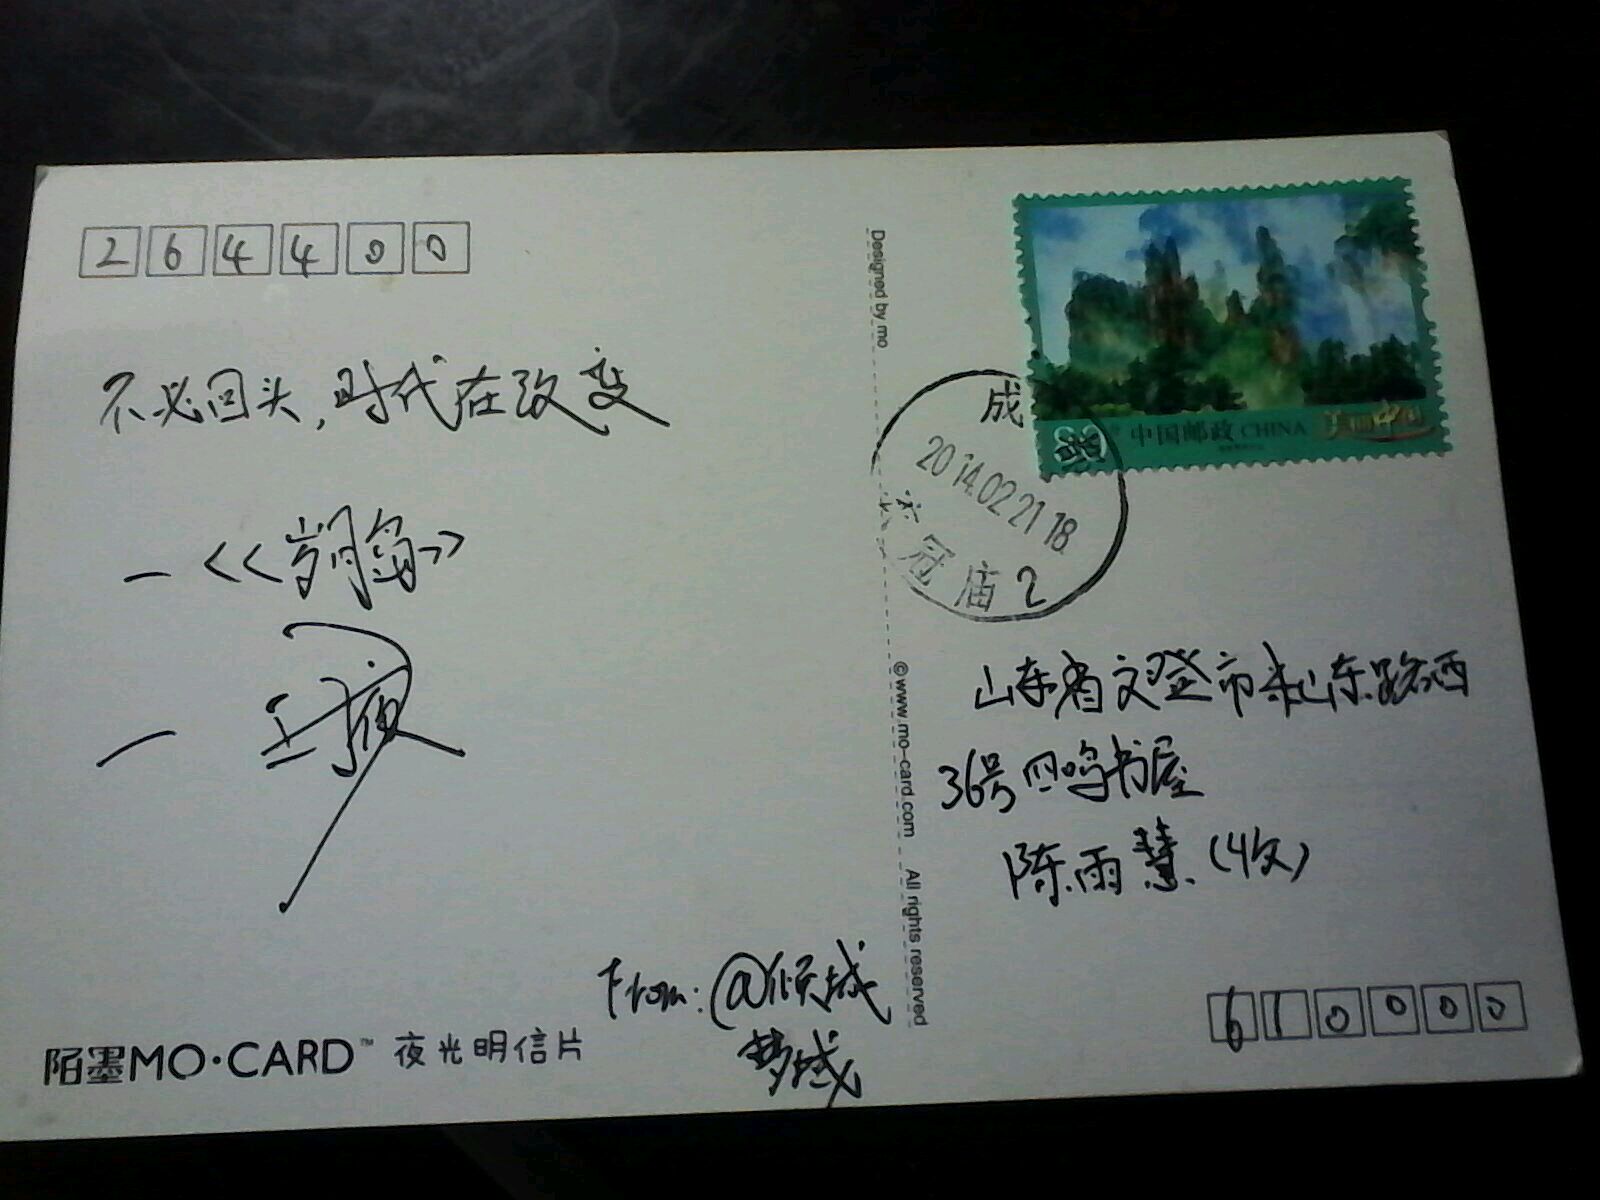 264400
不必回头，时代在改变
—《岁月岛》
Designed by mo
©www.mo-card.com All rights reserved
80 中国邮政 CHINA 美丽中国
成都
2014.02.21 18
衣冠庙 2
山东省文登市米山东路西
36号四鸣书屋
陈雨慧(收)
From: @倾城
梦城
610000
陌墨MO·CARD™ 夜光明信片